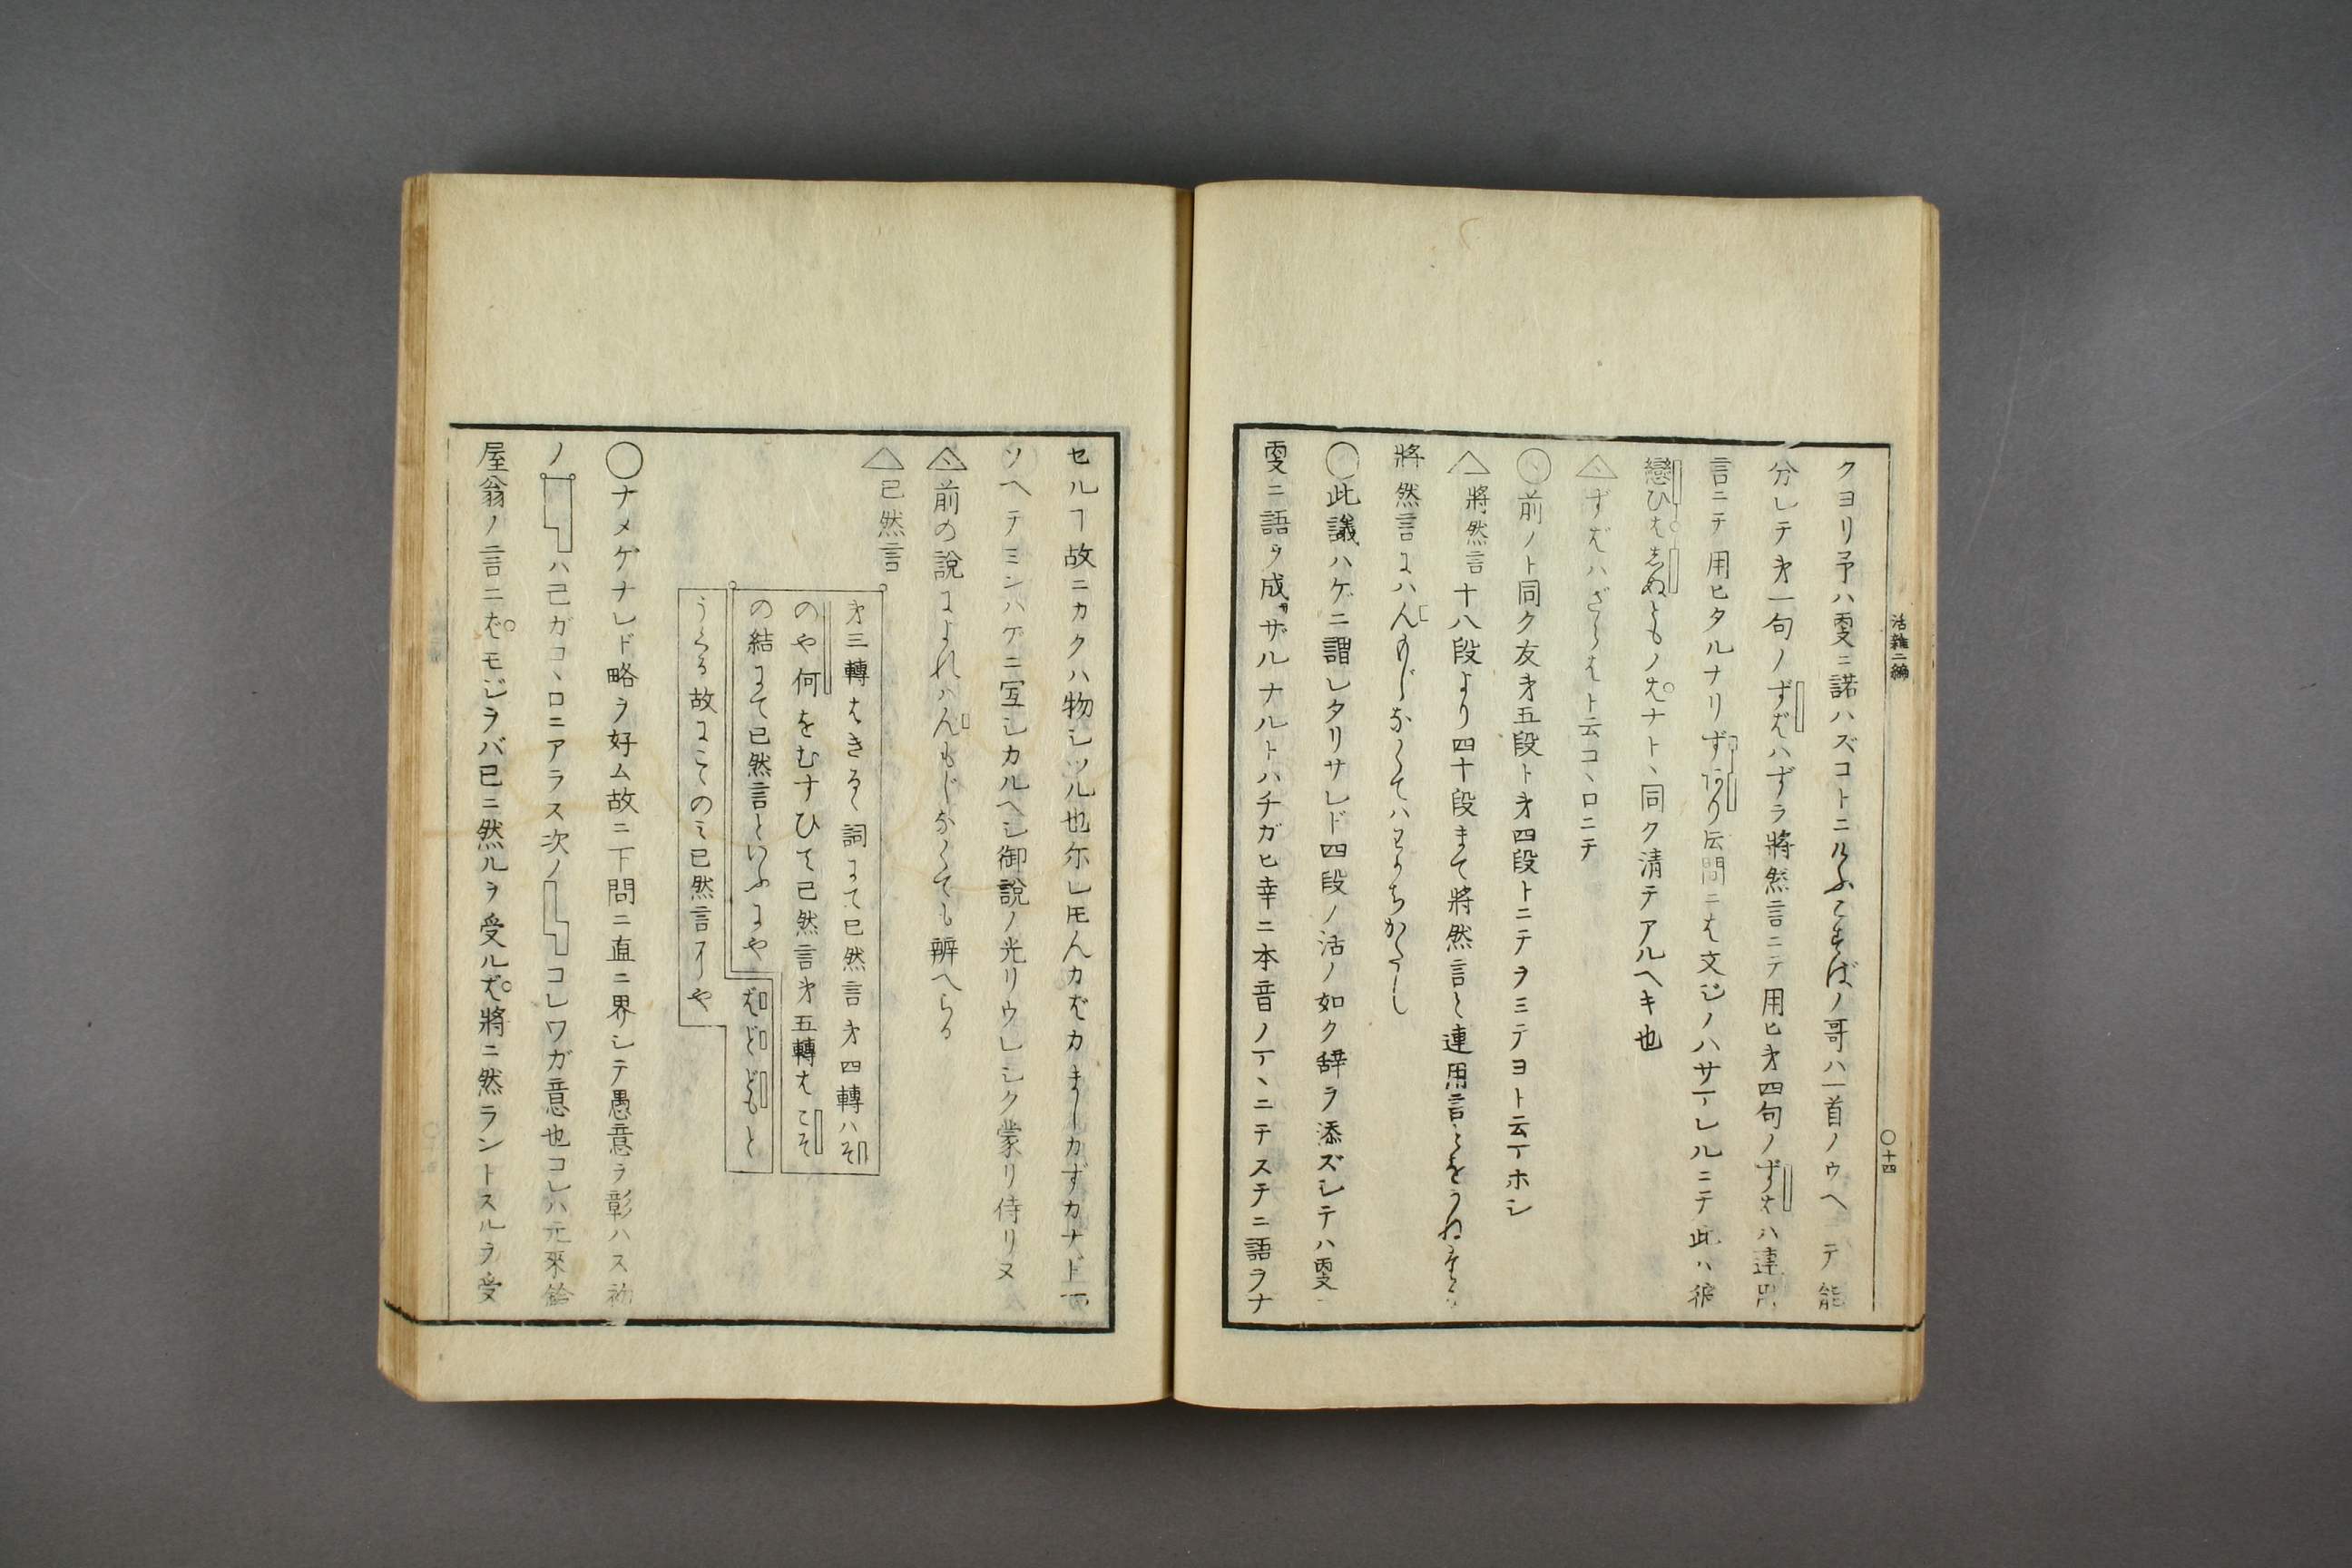 活雜二編
〇十四
クヨリ予ハ更ニ諾ハズコトニルふこそばノ哥ハ一首ノウヘニテ能
分レテ才一句ノずばハずラ將然言ニテ用ヒ才四句ノずはハ連用
言ニテ用ヒタルナリずありト問ニは文ジノハサマレルニテ此ハ
戀ひはしぬともノはナト、同ク清テアルヘキ也
△ずばハざらはト云コ、ロニテ
〇前ノト同ク友才五段ト才四段トニテヲミテヨト云ヿホシ
△將然言十八段より四十段まて將然言と連用言とをうね
將然言にハんもじなくてハわかちかたし
〇此議ハゲニ謂レタリサレド四段ノ活ノ如ク辞ラ添ズシテハ更ニ
更ニ語ヲ成サザルナルトハチガヒ幸ニ本音ノヿヽニテステニ語ラナ
セルヿ故ニカクハ物シツル也尓レ㕝んカばカましカずカナド
ソヘテミンハゲニ宜シカルヘシ御説ノ光リウレシク蒙リ侍リヌ
△前の說によれハんもじなくても辨へらる
△已然言
才三轉はきるゝ詞にて已然言才四轉ハぞ
のや何をむすひて已然言才五轉はこそ
の結にて已然言といふにやばどどもと
うくる故にこゝのミ已然言なりや
〇ナメゲナレド略ヲ好ム故ニ下問ニ直ニ界シテ愚意ヲ彰ハス初
ノハ己ガコヽロニアラス次ノコレワガ意也コレハ元來鈴
屋翁ノ言ニばモジヲバ已ニ然ルヲ受ルば將ニ然ラントスルヲ受